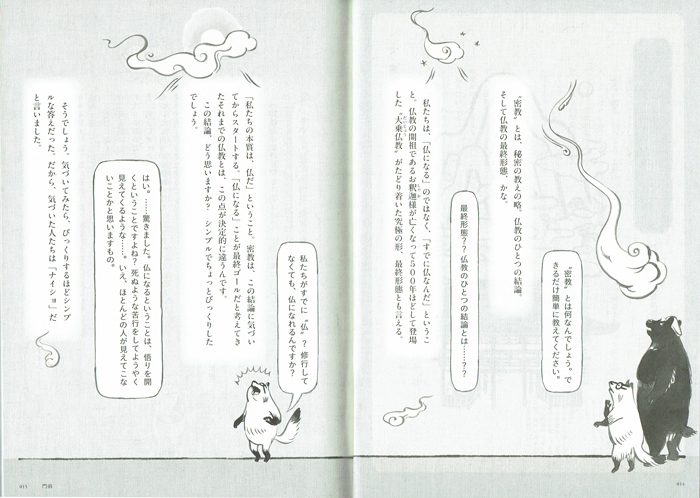 〝密教〟とは何なんでしょう。で
きるだけ簡単に教えてください。
〝密教〟とは、秘密の教えの略。仏教のひとつの結論。
そして仏教の最終形態、かな。
最終形態??仏教のひとつの結論とは……??
私たちは、「仏になる」のではなく、「すでに仏なんだ」というこ
と、仏教の開祖であるお釈迦様が亡くなって500年ほどして登場
した〝大乗仏教〟がたどり着いた究極の形、最終形態とも言える。
私たちがすでに〝仏〟?修行して
なくても、仏になれるんですか?
「私たちの本質は、仏だ」ということ。密教は、この結論に気づい
てからスタートする。「仏になる」ことが最終ゴールだと考えてき
たそれまでの仏教とは、この点が決定的に違うんです。
この結論、どう思いますか? シンプルでちょっとびっくりした
でしょう。
はい。……驚きました。仏になるということは、悟りを開
くということですよね?死ぬような苦行をしてようやく
見えてくるような……。いえ、ほとんどの人が見えてこな
いことかと思いますもの。
そうでしょう。気づいてみたら、びっくりするほどシンプ
ルな答えだった。だから、気づいた人たちは「ナイショ」だ
と言いました。
014
015
門前